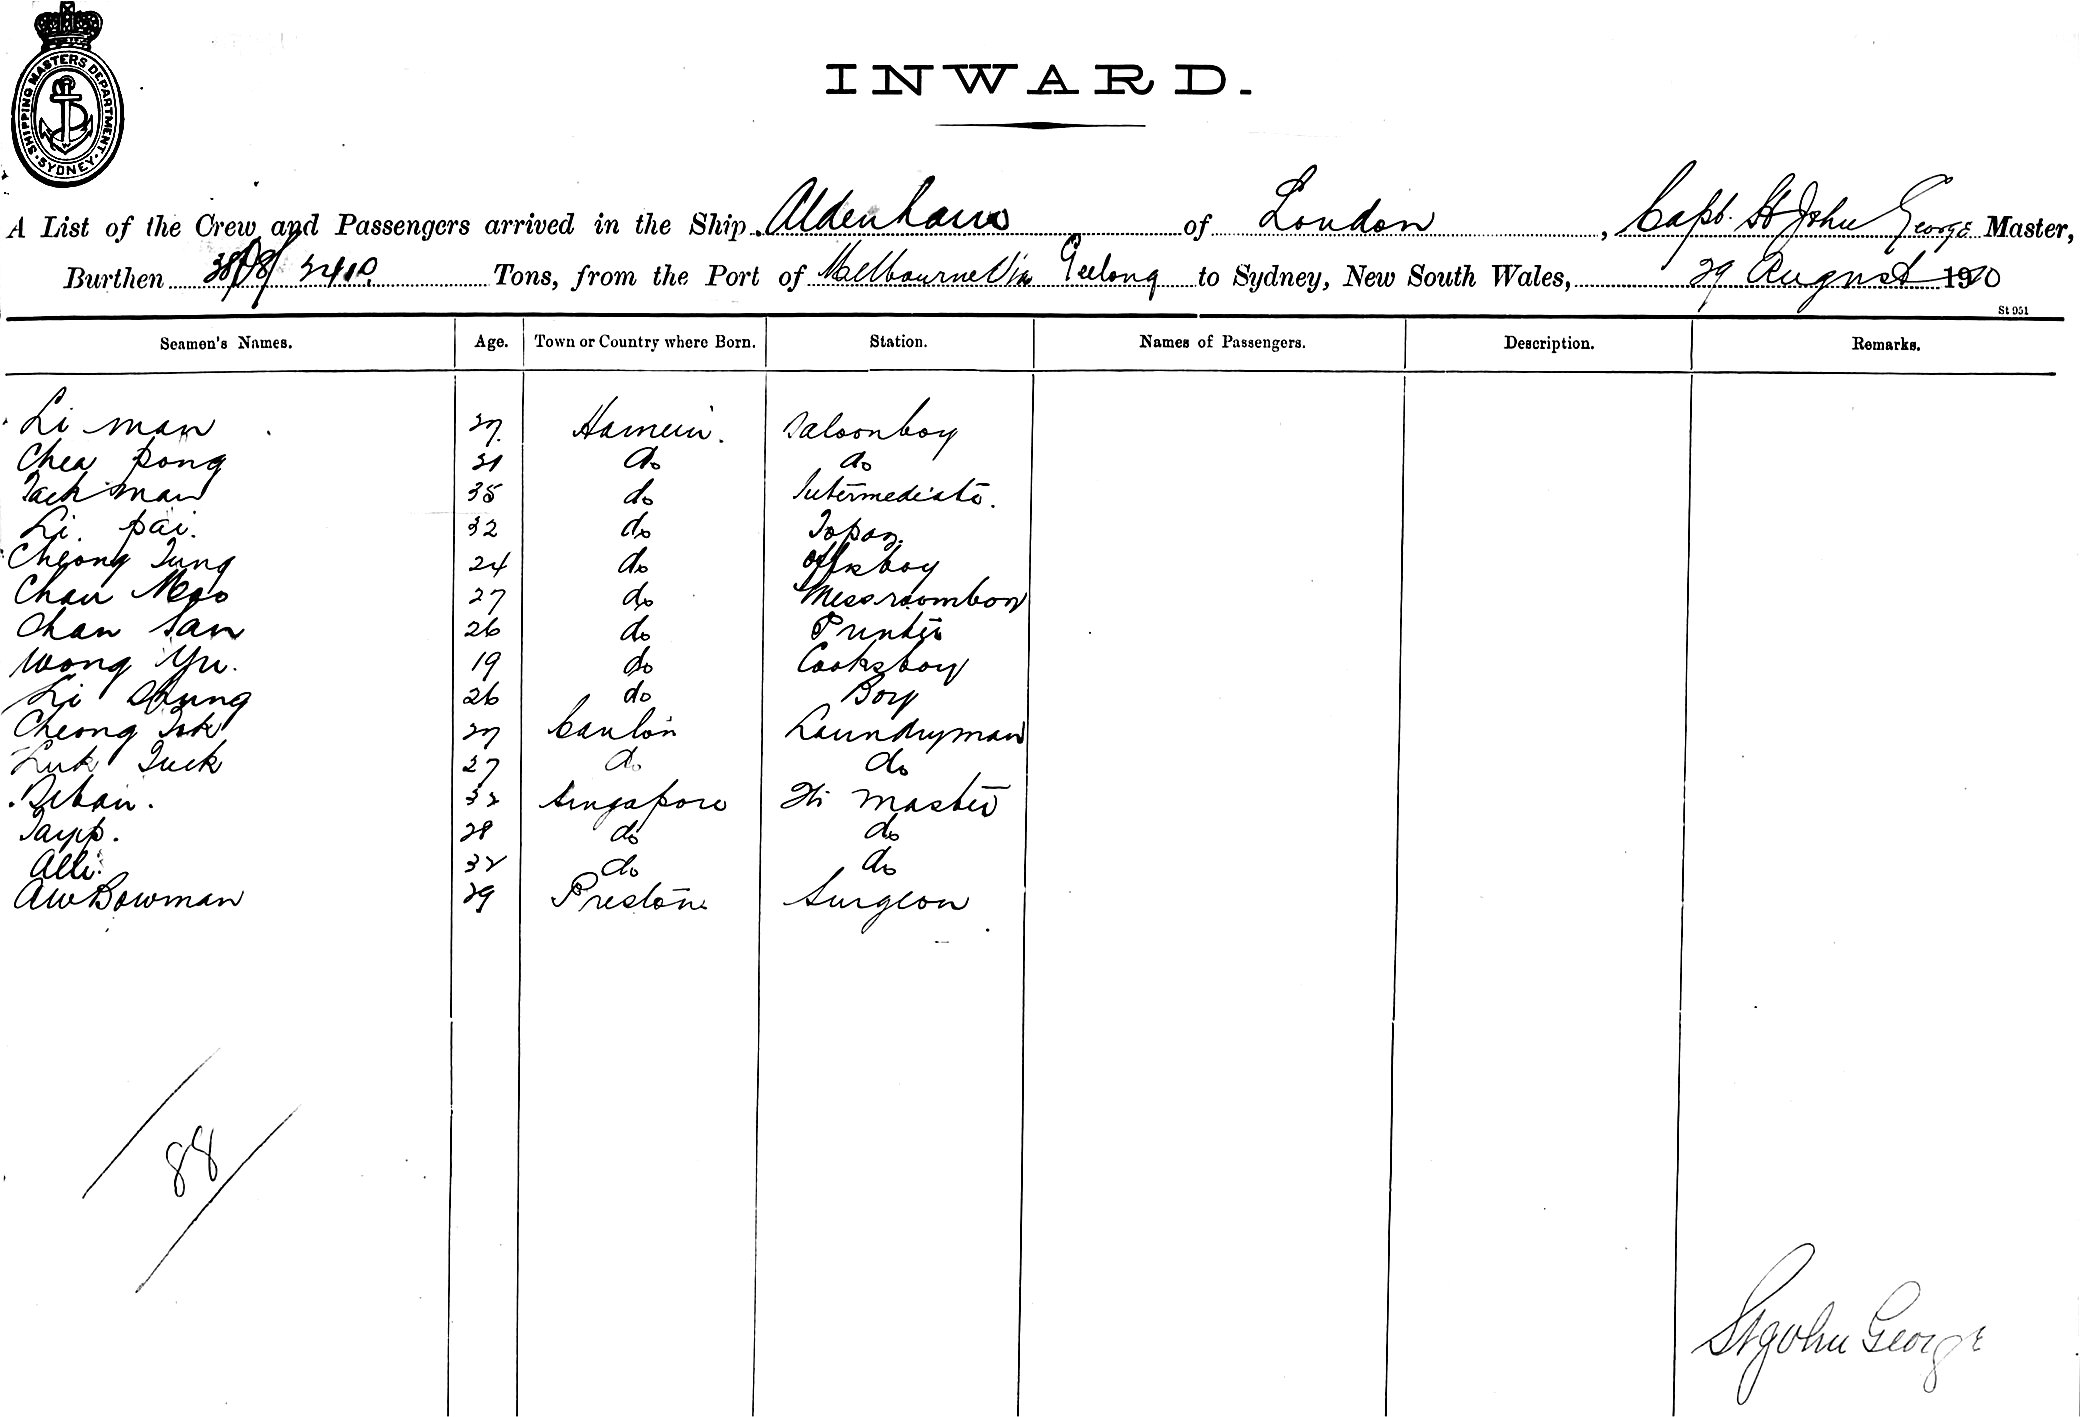 SHIPPING MASTERS DEPARTMENT · SYDNEY ·
INWARD.
A List of the Crew and Passengers arrived in the Ship Aldenham of London, Capt. St John George Master,
Burthen 3808/2410 Tons, from the Port of Melbourne Via Geelong to Sydney, New South Wales, 29 August 1910
St 951
Seamen's Names. Age. Town or Country where Born. Station. Names of Passengers. Description. Remarks.
Li man 27. Saloonboy
Chea pong 31 do do
Tack man 35 do Intermediate.
Li pai. 32 do Topaz.
Cheong Tung 24 do Offrsboy
Chan Moo 27 do Messroomboy
Chan San 26 do
Wong Yu. 19 do Cooksboy
Li Chung 26 do Boy
Cheong Tuk 27 Canton Laundryman
Luk Tuck 27 do do
32 Singapore Qr master
28 do do
Alli. 32 do do
AW Bowman 29 Preston Surgeon
88
St John George